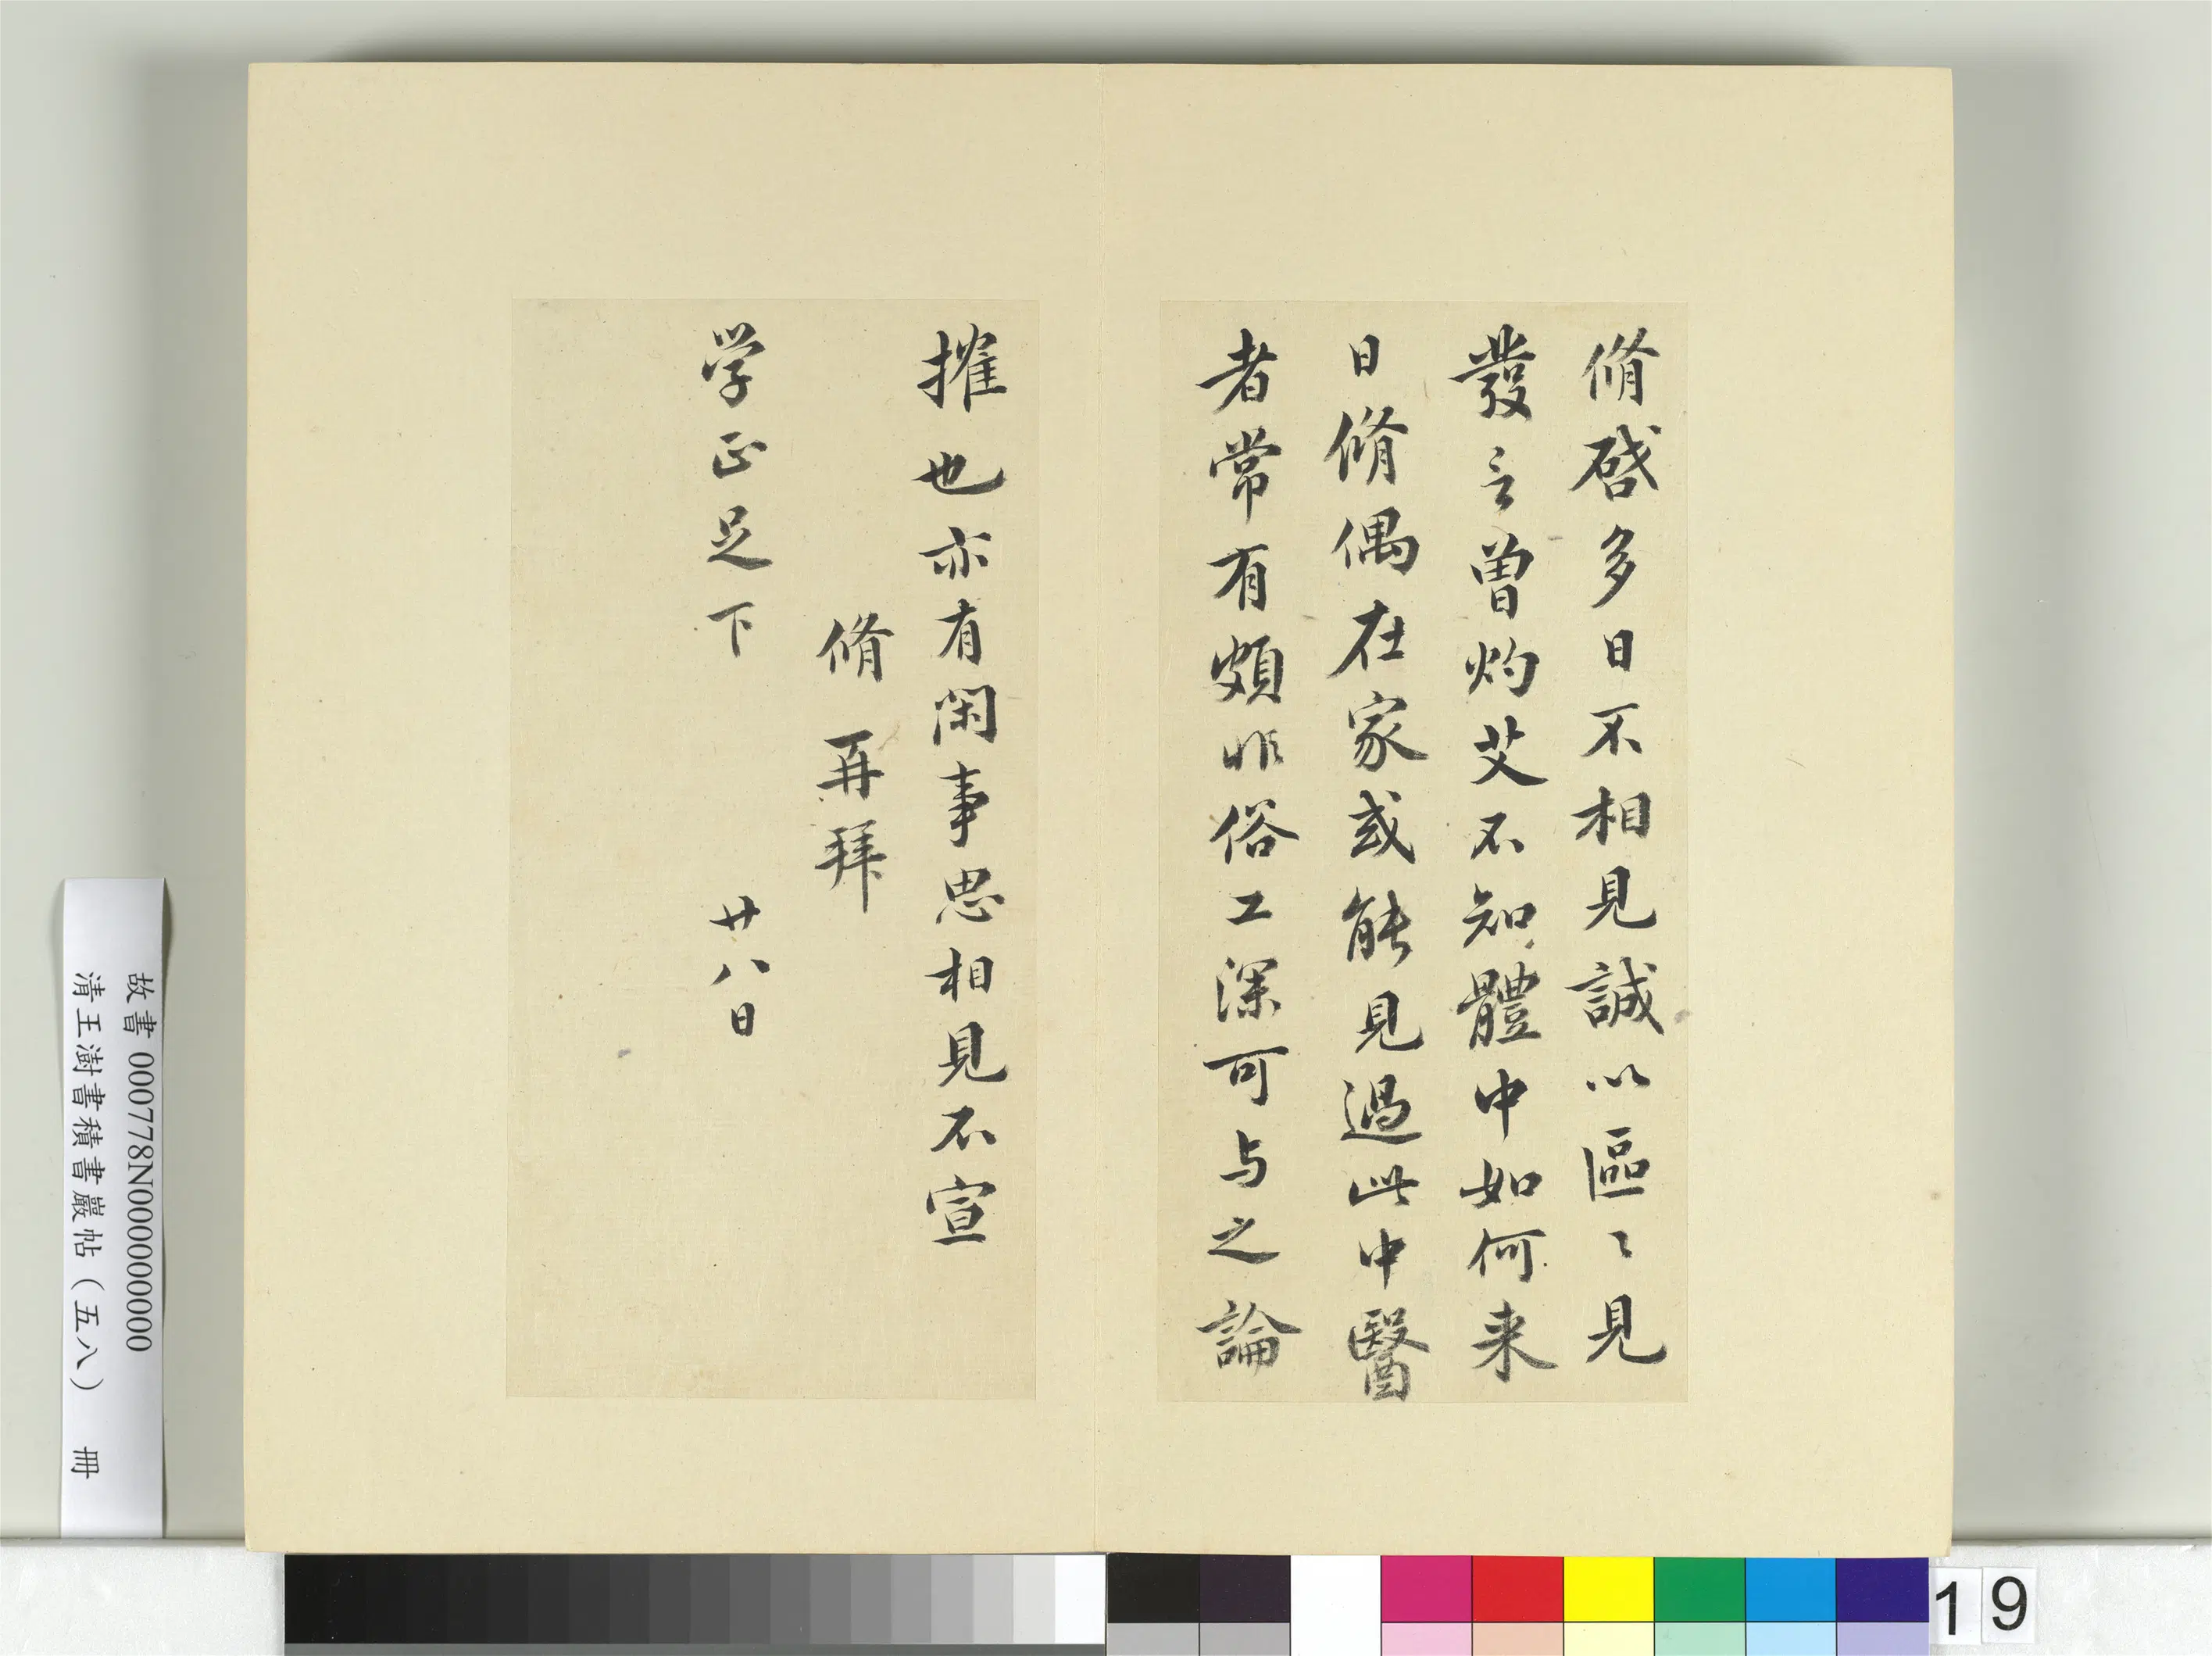 脩啓多日不相見誠以區〻見
發言曽灼艾不知體中如何来
日脩偶在家或能見過此中醫
者常有頗非俗工深可与之論
搉也亦有閑事思相見不宣
脩再拜
学正足下 廿八日
故書 000778N000000000
清王澍書積書巖帖（五八） 冊
19